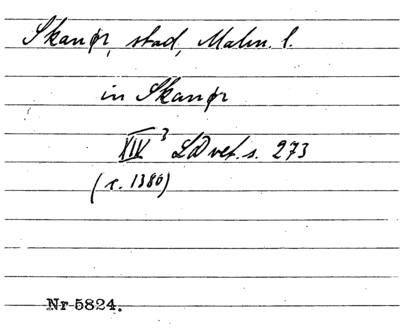 Skanör, stad, Malm. l.
in Skanør
XIV³ LD vet. s. 273
(c. 1380)
Nr 5824.